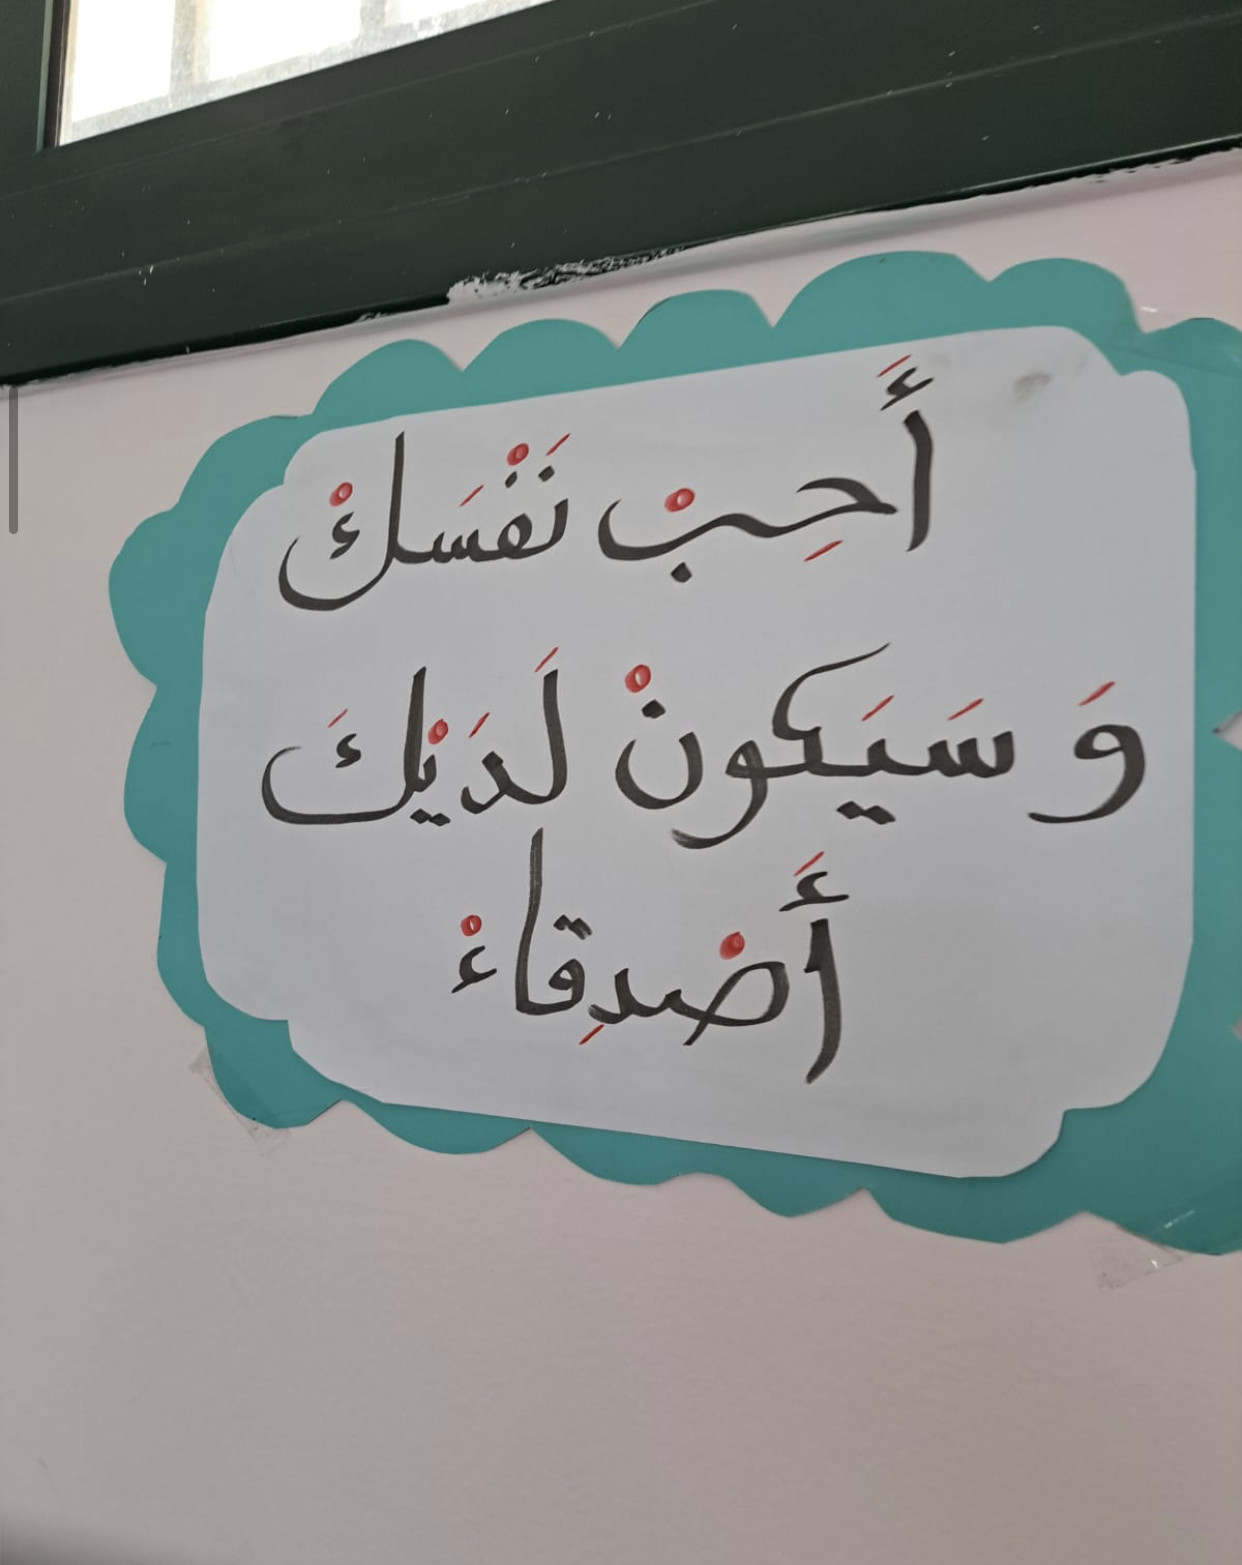 أَحِبْ نَفْسَكْ
وَ سَيَكونْ لَدَيْكَ
أَصْدِقاءْ